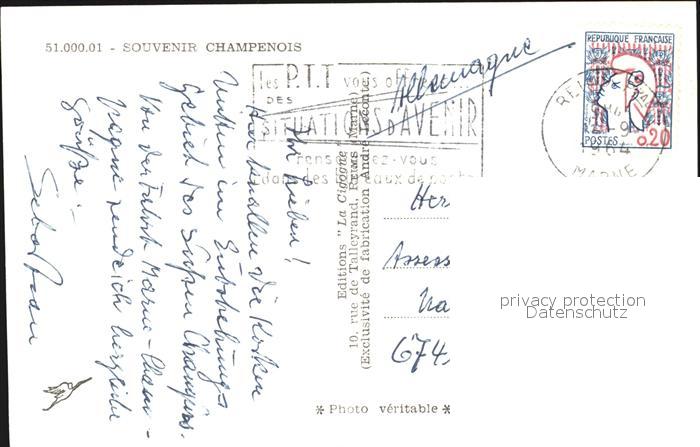 51.000.01 - SOUVENIR CHAMPENOIS
les P.T.T vous offrent
DES
SITUATIONS D'AVENIR
renseignez-vous
dans les bureaux de poste
Allemagne
REPUBLIQUE FRANÇAISE
POSTES 0,20
REIMS
MARNE
Ihr Lieben!
Hier knallen die Korken
mitten im Entstehungs
Gebiet des Süßen Champus.
Von der Fahrt Marne-Cham-
pagne sende ich herzliche
Grüße :-
Editions "La Cigogne"
10, rue de Talleyrand, Reims (Marne)
(Exclusivité de fabrication André Leconte)
Her
Assess
674
privacy protection
Datenschutz
* Photo véritable *